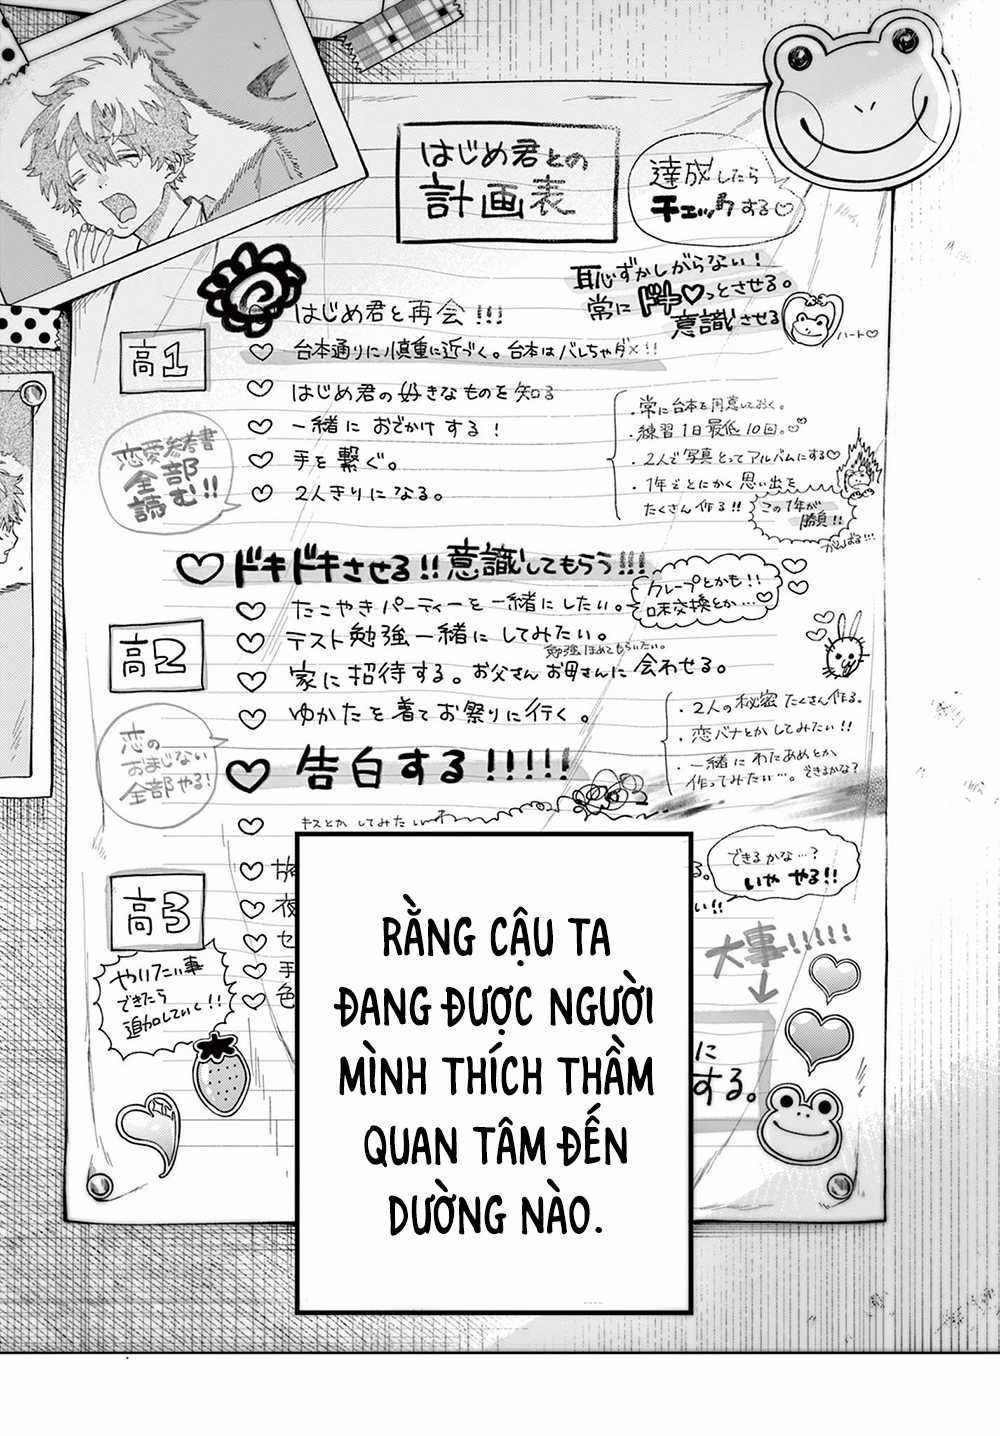 はじめ君との
計画表
達成したら
チェックする♡
恥ずかしがらない！
常にドキ♡っとさせる。
意識させる
ハート♡
はじめ君と再会!!!
高1
♡ 台本通りに慎重に近づく。台本はバレちゃダメ!!
♡ はじめ君の好きなものを知る
♡ 一緒におでかけする！
♡ 手を繋ぐ。
♡ 2人きりになる。
・常に台本を用意しておく。
・練習1日最低10回。♡
・2人で写真とってアルバムにする♡
・1年ごとにかく思い出を
たくさん作る!!
この1年が
勝負!!
がんばる!!!
恋愛参考書
全部
読む!!
♡ドキドキさせる!!意識してもらう!!!
♡ たこやきパーティーを一緒にしたい。
クレープとかも!!
味交換とか…♡
高2
♡ テスト勉強一緒にしてみたい。
勉強ほめてもらいたい。
♡ 家に招待する。お父さんお母さんに会わせる。
♡ ゆかたを着てお祭りに行く。
・2人の秘密たくさん作る。
・恋バナとかしてみたい!!
・一緒にわたあめとか
作ってみたい…。できるかな?
恋の
おまじない
全部やる!
♡ 告白する!!!!!
♡ キスとかしてみたい
できるかな…?
いや やる!!
高3
♡ 夜
♡ セ
♡ 手
♡ 色
やりたい事
できたら
追加していく!!
大事!!!!!
に
する。
RẰNG CẬU TA
ĐANG ĐƯỢC NGƯỜI
MÌNH THÍCH THẦM
QUAN TÂM ĐẾN
DƯỜNG NÀO.